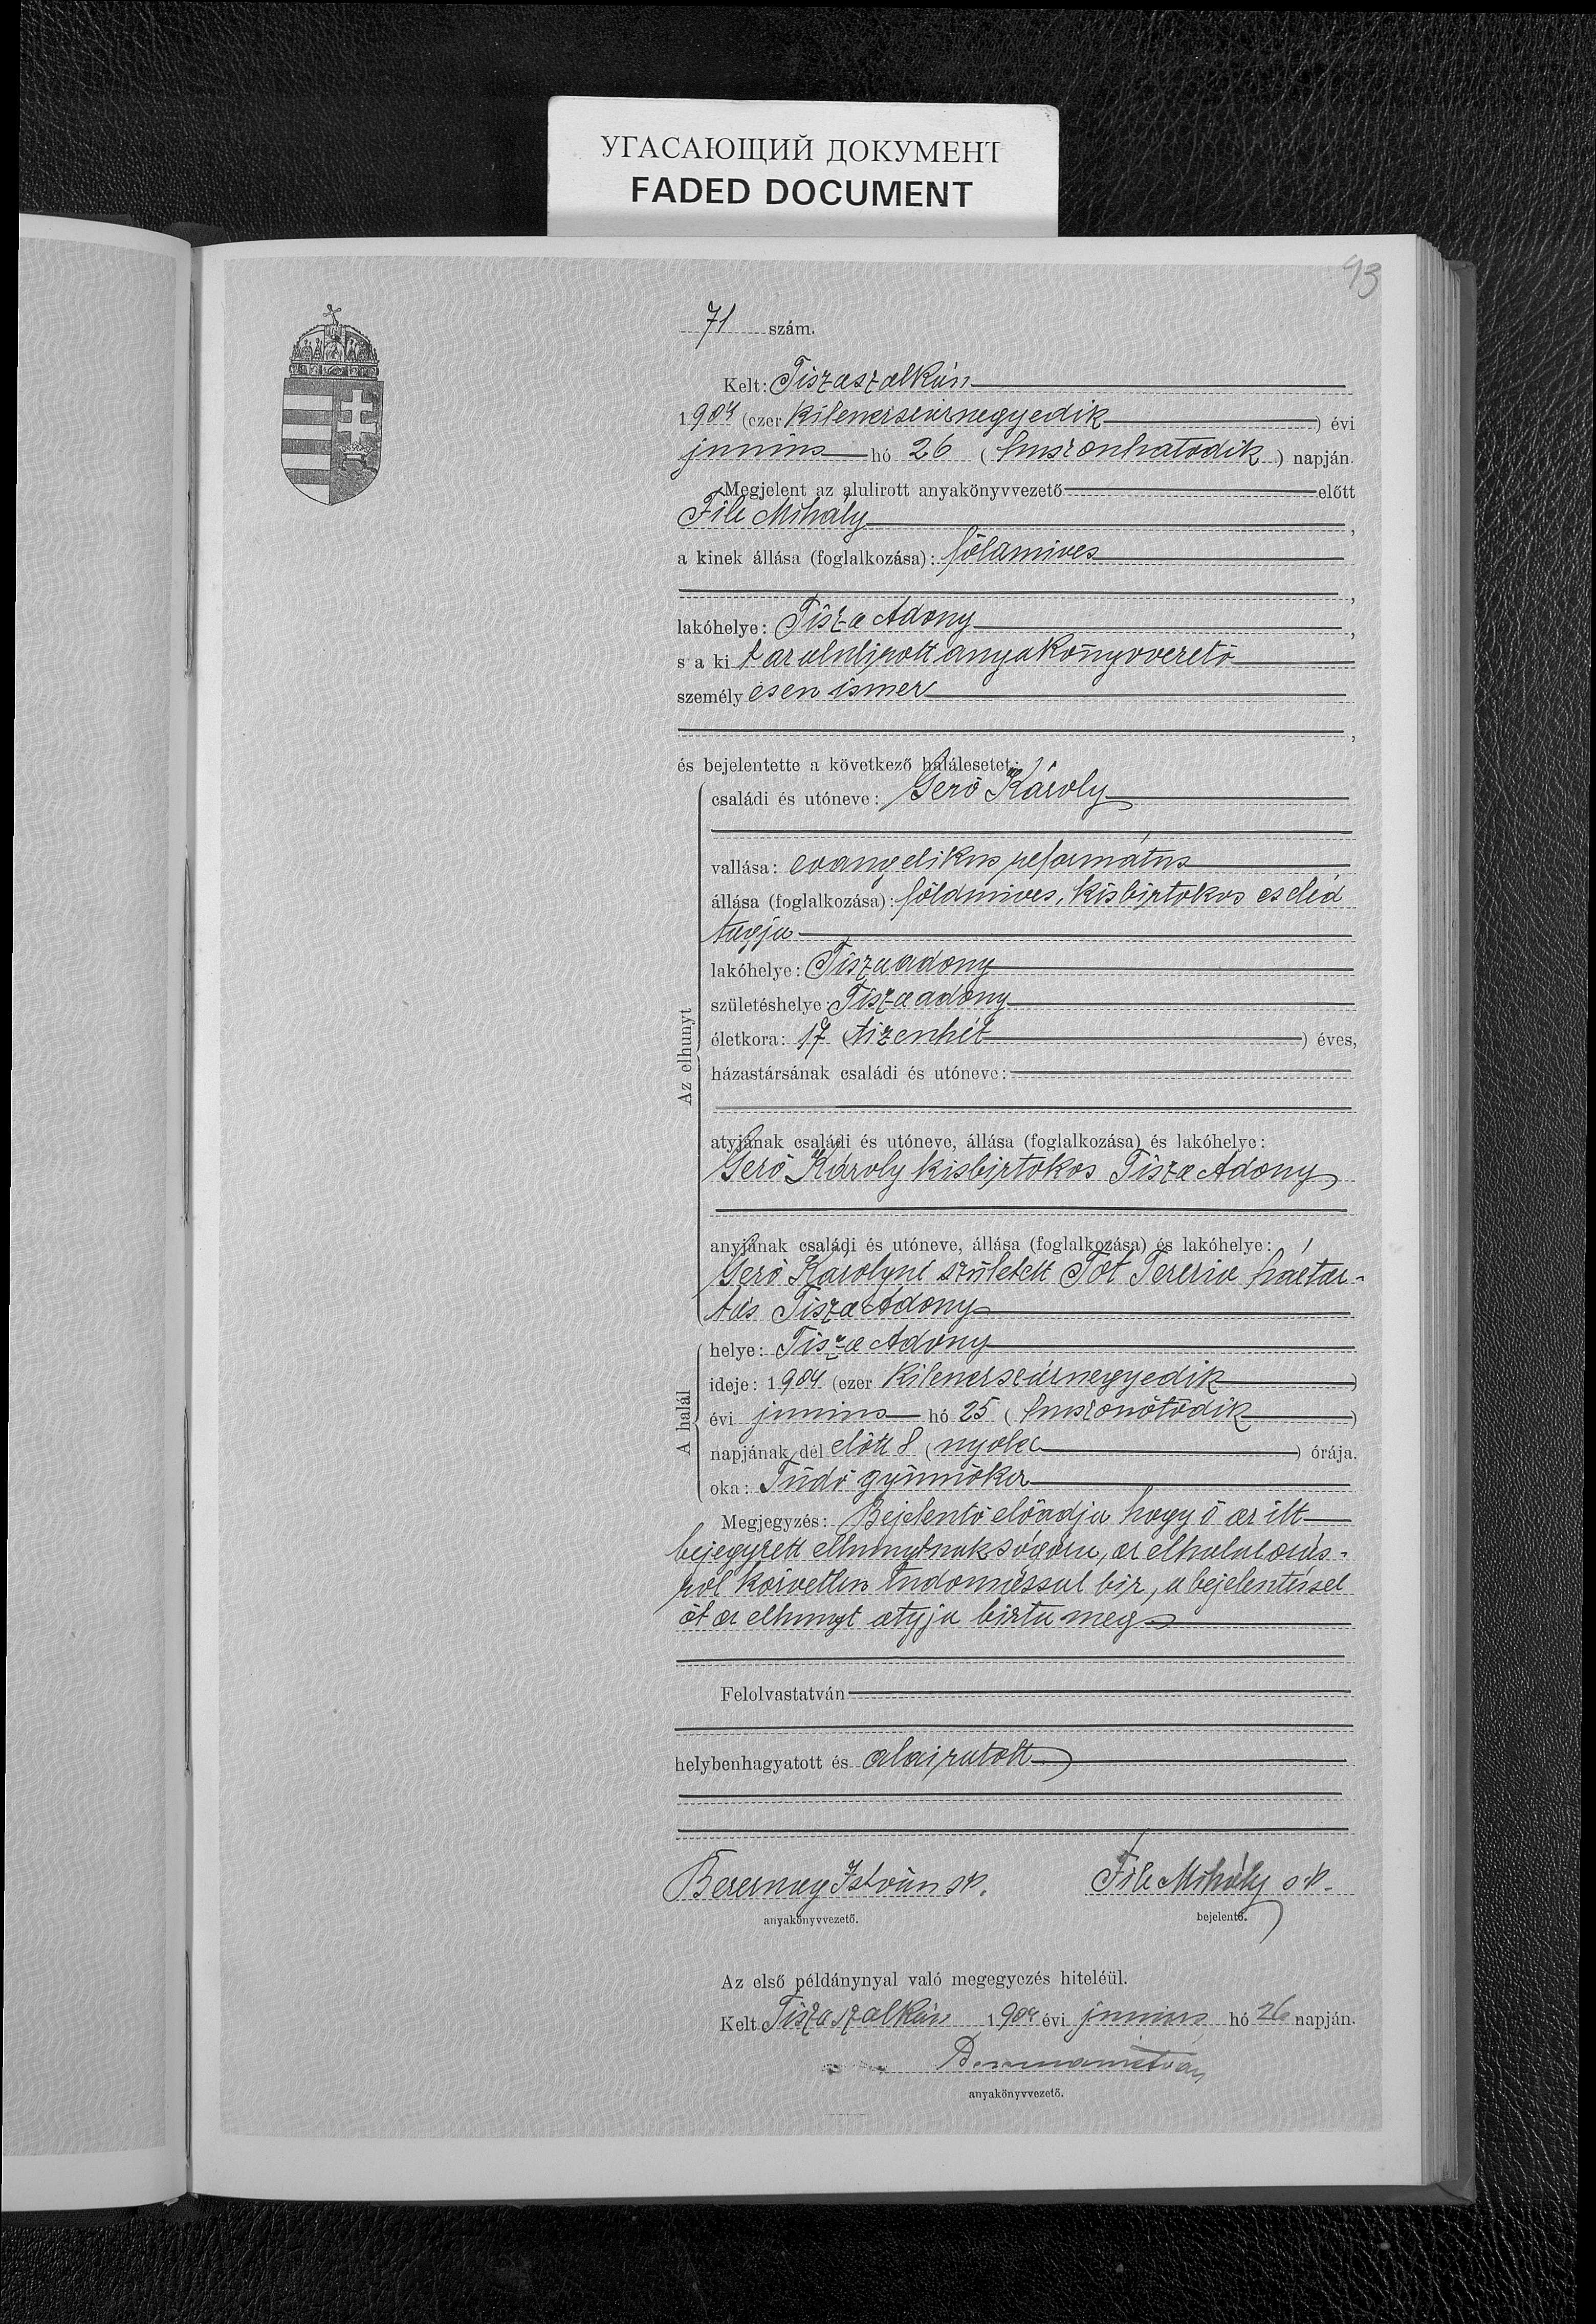 УГАСАЮЩИЙ ДОКУМЕНТ
FADED DOCUMENT
93
71 szám.
Kelt: Tiszaszalkán
1904 (ezer kilencszáznegyedik) évi
junius hó 26 (huszonhatodik) napján.
Megjelent az alulirott anyakönyvvezető előtt
File Mihály,
a kinek állása (foglalkozása): földmives
,
lakóhelye: Tisza Adony,
s a kit az alulirott anyakönyvvezető
személyesen ismer
,
és bejelentette a következő halálesetet:
Az elhunyt
családi és utóneve: Gerő Károly
vallása: evangelikus református
állása (foglalkozása): földmives, kisbirtokos cseléd
tagja
lakóhelye: Tiszaadony
születéshelye: Tiszaadony
életkora: 17 (tizenhét) éves,
házastársának családi és utóneve:
atyjának családi és utóneve, állása (foglalkozása) és lakóhelye:
Gerő Károly kisbirtokos Tisza Adony
anyjának családi és utóneve, állása (foglalkozása) és lakóhelye:
Gerő Károlyné született Tót Terézia háztar-
tás Tisza Adony
A halál
helye: Tisza Adony
ideje: 1904 (ezer kilencszáznegyedik)
évi junius hó 25 (huszonötödik)
napjának dél előtt 8 (nyolc) órája.
oka: Tüdő gümőkór
Megjegyzés: Bejelentő előadja hogy ő az itt
bejegyzett elhunytnak sógora, az elhalálozás-
ról közvetlen tudomással bir, a bejelentéssel
őt az elhunyt atyja bizta meg
Felolvastatván
helybenhagyatott és aláiratott
István sk. File Mihály sk.
anyakönyvvezető. bejelentő.
Az első példánynyal való megegyezés hiteléül.
Kelt Tiszaszalkán 1904 évi junius hó 26 napján.
István
anyakönyvvezető.